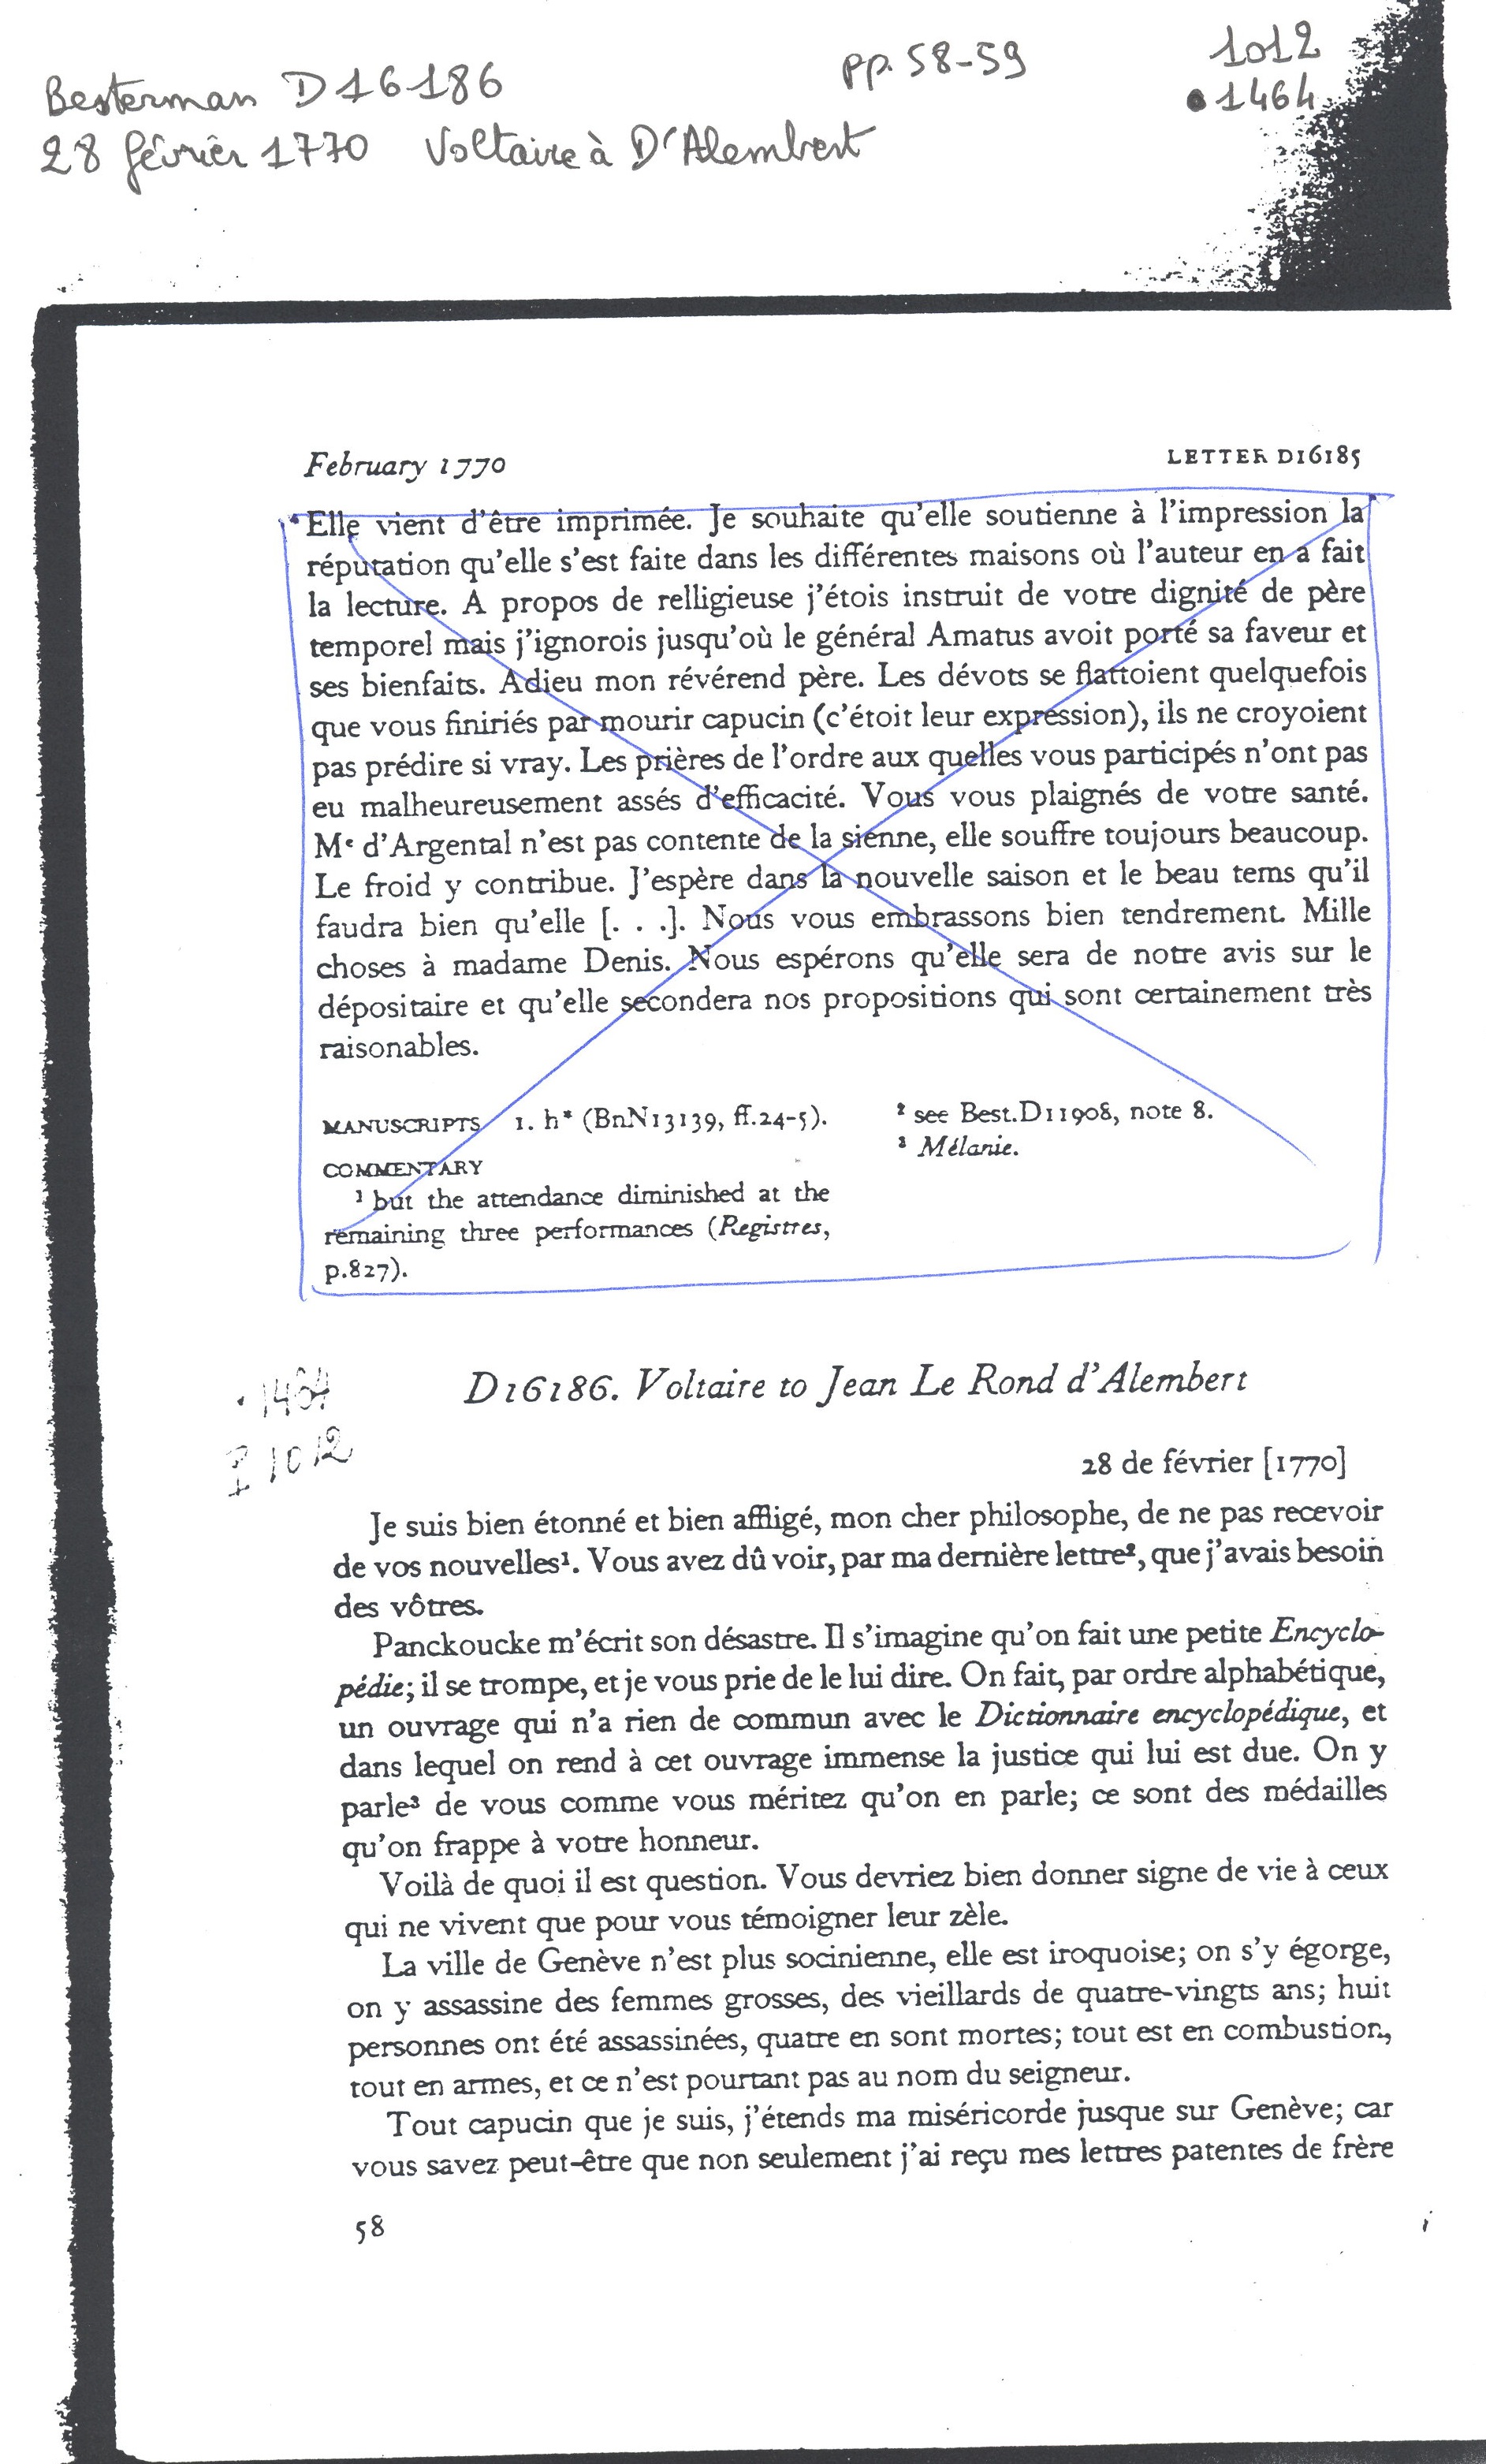 Besterman D16186 pp. 58-59 1012
1464
28 février 1770 Voltaire à D'Alembert
February 1770 LETTER D16185
Elle vient d'être imprimée. Je souhaite qu'elle soutienne à l'impression la
réputation qu'elle s'est faite dans les différentes maisons où l'auteur en a fait
la lecture. A propos de relligieuse j'étois instruit de votre dignité de père
temporel mais j'ignorois jusqu'où le général Amatus avoit porté sa faveur et
ses bienfaits. Adieu mon révérend père. Les dévots se flattoient quelquefois
que vous finiriés par mourir capucin (c'étoit leur expression), ils ne croyoient
pas prédire si vray. Les prières de l'ordre aux quelles vous participés n'ont pas
eu malheureusement assés d'efficacité. Vous vous plaignés de votre santé.
Mᵉ d'Argental n'est pas contente de la sienne, elle souffre toujours beaucoup.
Le froid y contribue. J'espère dans la nouvelle saison et le beau tems qu'il
faudra bien qu'elle [. . .]. Nous vous embrassons bien tendrement. Mille
choses à madame Denis. Nous espérons qu'elle sera de notre avis sur le
dépositaire et qu'elle secondera nos propositions qui sont certainement très
raisonables.
MANUSCRIPTS 1. h* (BnN13139, ff.24-5).
COMMENTARY
¹ but the attendance diminished at the
remaining three performances (Registres,
p.827).
² see Best.D11908, note 8.
³ Mélanie.
1464
1012
D16186. Voltaire to Jean Le Rond d'Alembert
28 de février [1770]
Je suis bien étonné et bien affligé, mon cher philosophe, de ne pas recevoir
de vos nouvelles¹. Vous avez dû voir, par ma dernière lettre², que j'avais besoin
des vôtres.
Panckoucke m'écrit son désastre. Il s'imagine qu'on fait une petite Encyclo-
pédie; il se trompe, et je vous prie de le lui dire. On fait, par ordre alphabétique,
un ouvrage qui n'a rien de commun avec le Dictionnaire encyclopédique, et
dans lequel on rend à cet ouvrage immense la justice qui lui est due. On y
parle³ de vous comme vous méritez qu'on en parle; ce sont des médailles
qu'on frappe à votre honneur.
Voilà de quoi il est question. Vous devriez bien donner signe de vie à ceux
qui ne vivent que pour vous témoigner leur zèle.
La ville de Genève n'est plus socinienne, elle est iroquoise; on s'y égorge,
on y assassine des femmes grosses, des vieillards de quatre-vingts ans; huit
personnes ont été assassinées, quatre en sont mortes; tout est en combustion,
tout en armes, et ce n'est pourtant pas au nom du seigneur.
Tout capucin que je suis, j'étends ma miséricorde jusque sur Genève; car
vous savez peut-être que non seulement j'ai reçu mes lettres patentes de frère
58